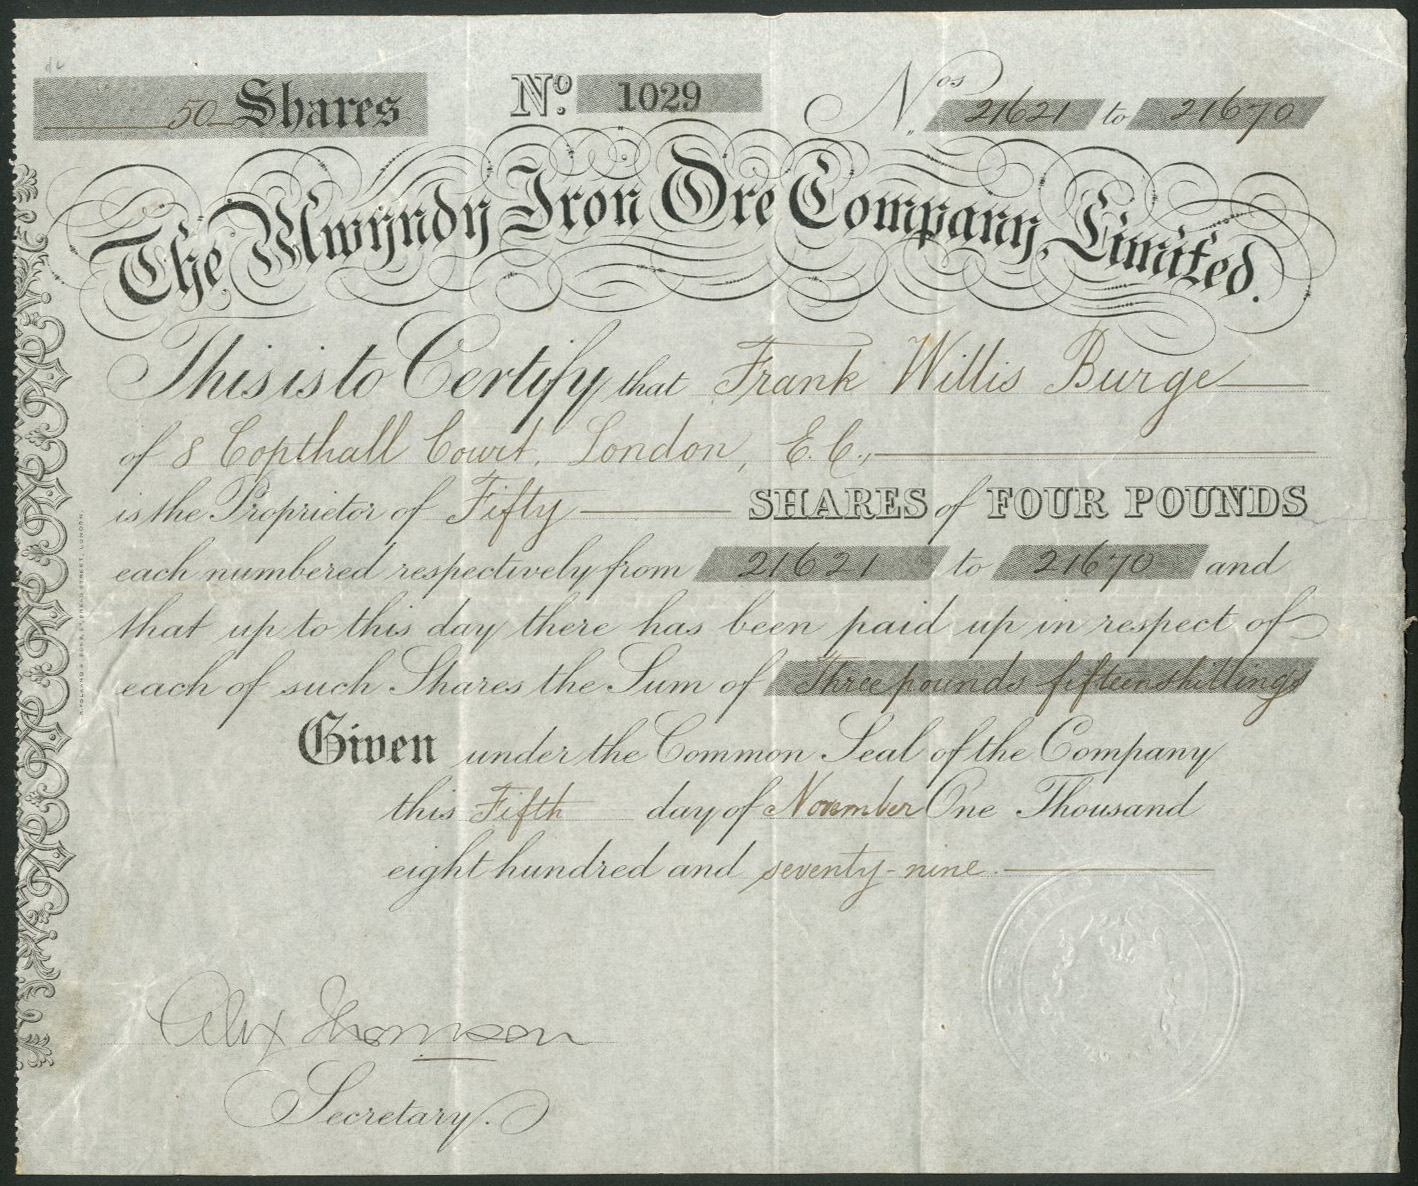 50 Shares
No. 1029
Nos. 21621 to 21670
The Mwyndy Iron Ore Company, Limited.
This is to Certify that Frank Willis Burge
of 8 Copthall Court, London, E.C.,
is the Proprietor of Fifty SHARES of FOUR POUNDS
each numbered respectively from 21621 to 21670 and
that up to this day there has been paid up in respect of
each of such Shares the Sum of Three pounds fifteen shillings
Given under the Common Seal of the Company
this Fifth day of November One Thousand
eight hundred and seventy-nine.
Alex Thomson
Secretary.